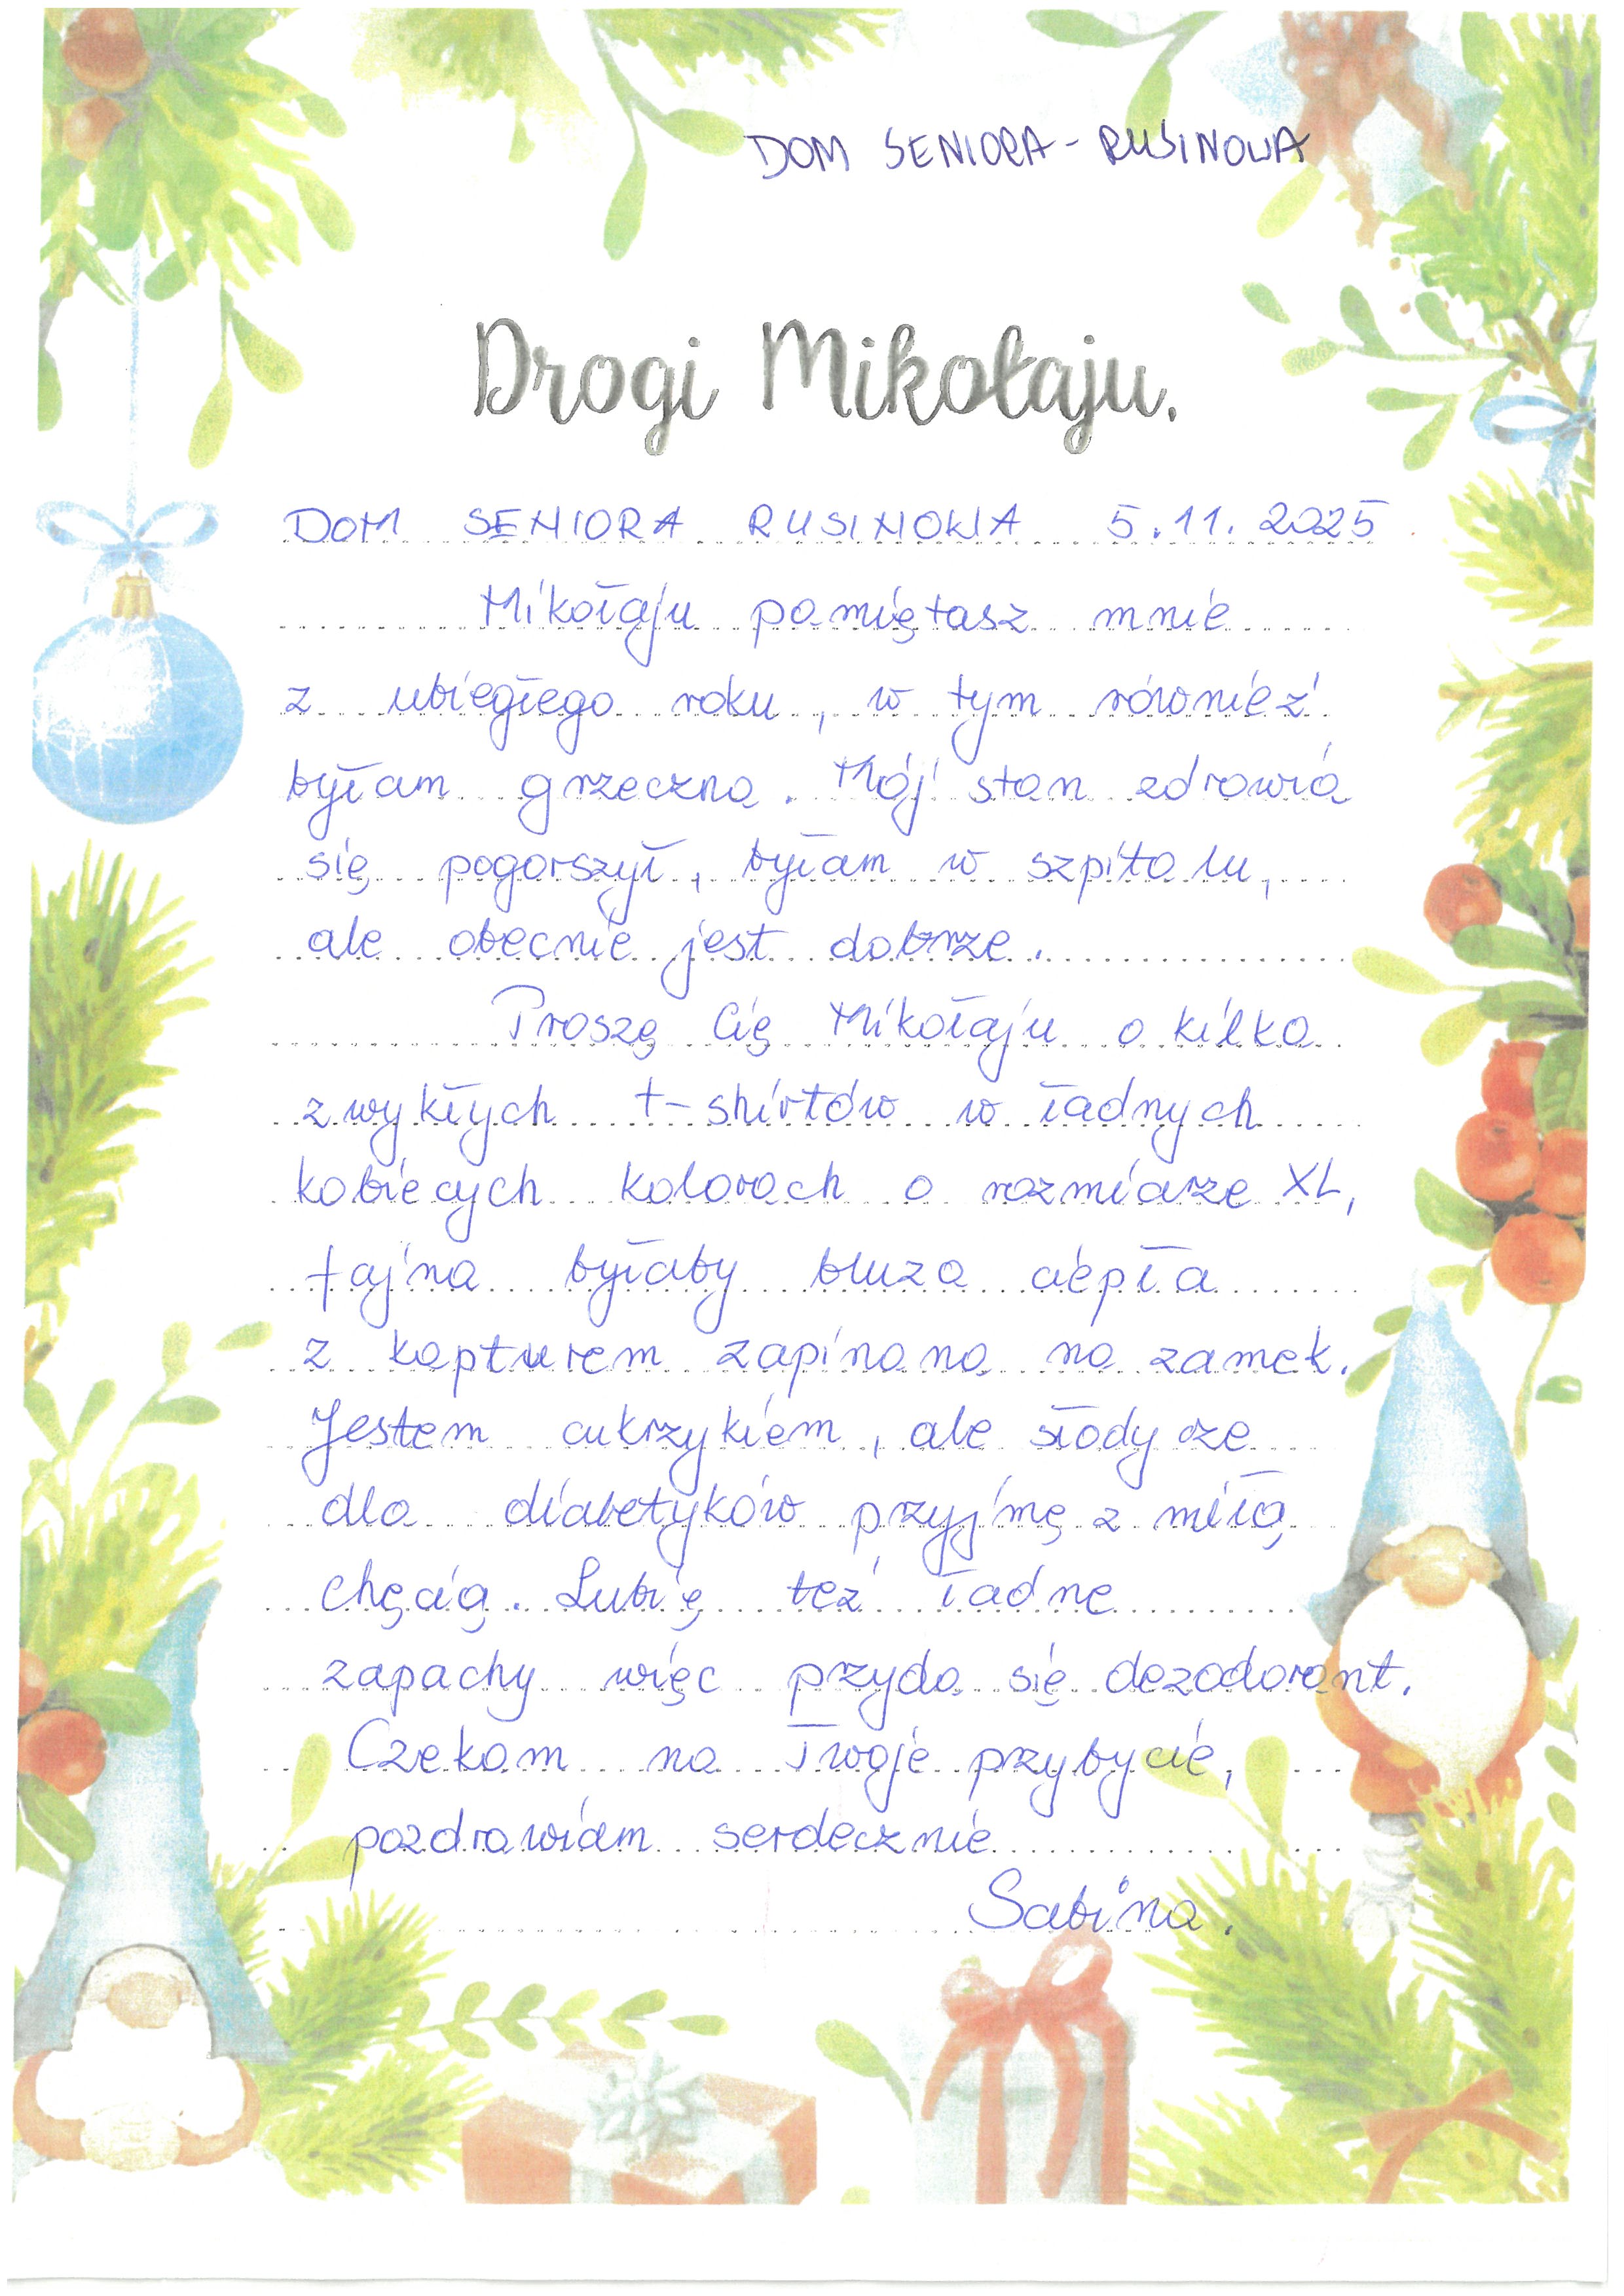 DOM SENIORA - RUSINOWA
Drogi Mikołaju.
DOM SENIORA RUSINOWA 5.11.2025
Mikołaju pamiętasz mnie
z ubiegłego roku, w tym również
byłam grzeczna. Mój stan zdrowia
się pogorszył, byłam w szpitalu,
ale obecnie jest dobrze.
Proszę Cię Mikołaju o kilka
zwykłych t-shirtów w ładnych
kobiecych kolorach o rozmiarze XL,
fajna byłaby bluza ciepła
z kapturem zapinana na zamek.
Jestem cukrzykiem, ale słodycze
dla diabetyków przyjmę z miłą
chęcią. Lubię też ładne
zapachy więc przyda się dezodorant.
Czekam na Twoje przybycie,
pozdrawiam serdecznie
Sabina.